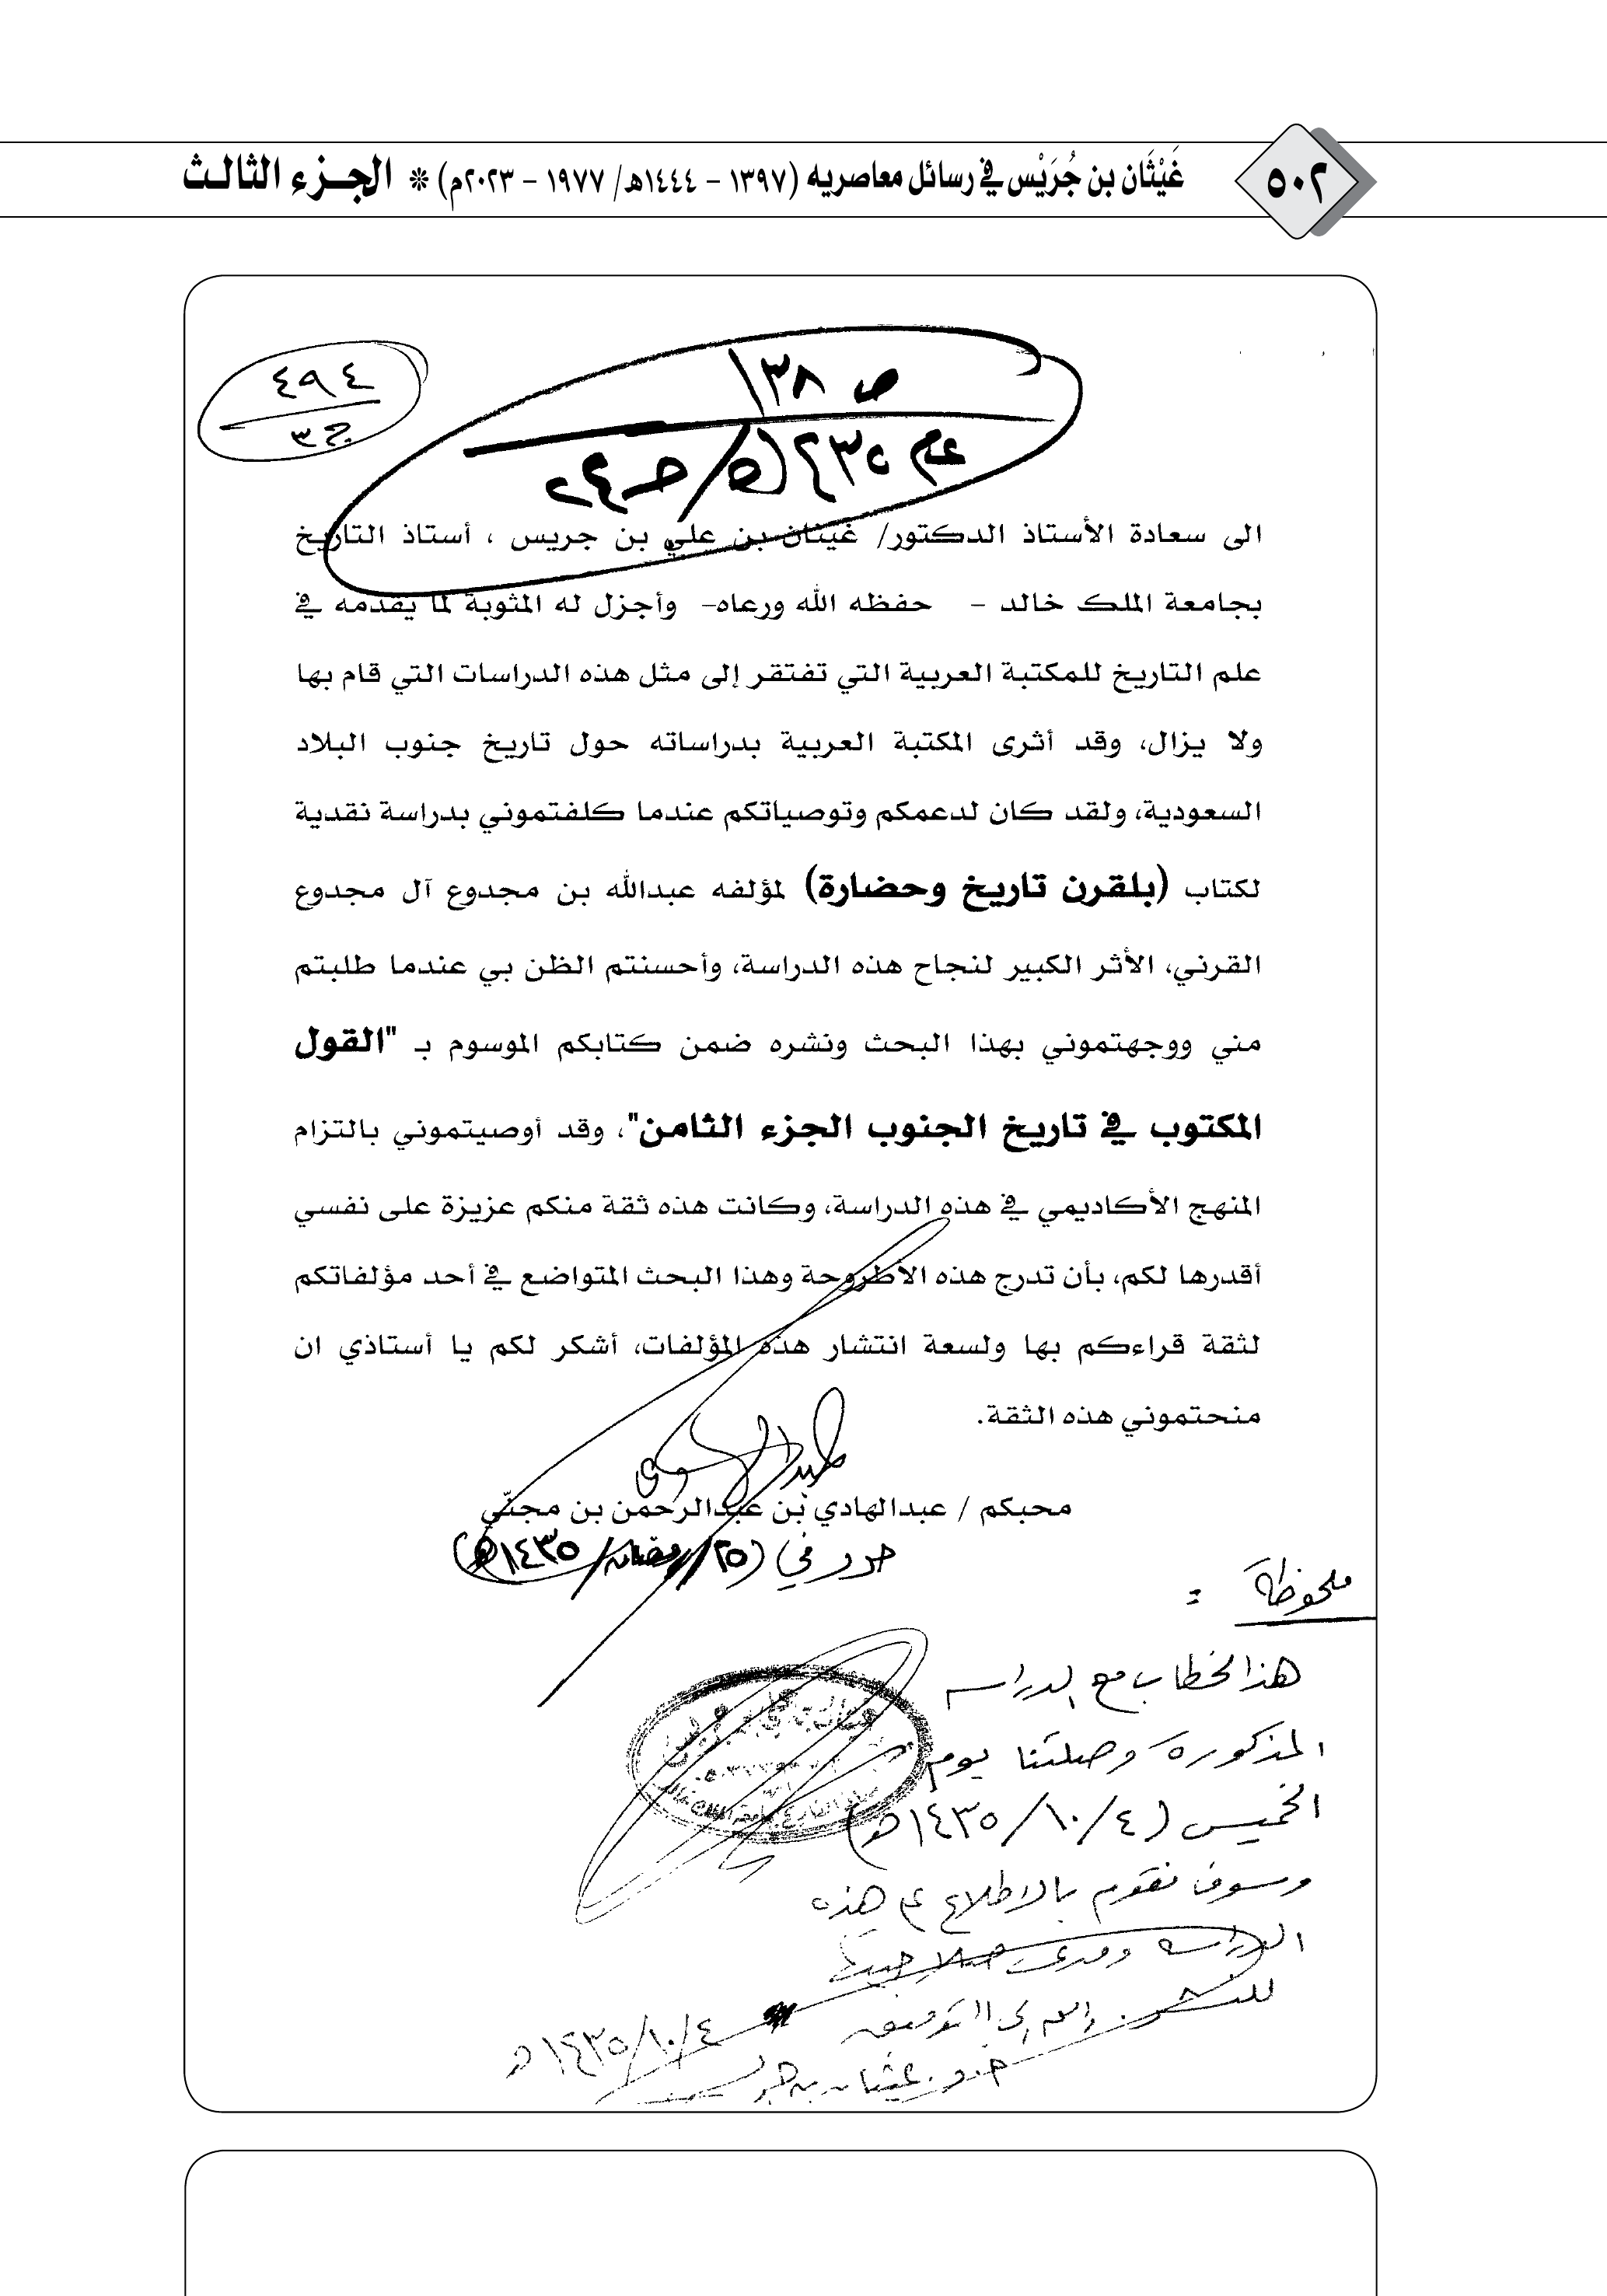 ٥٠٢
غَيْثَان بن جُرَيْس في رسائل معاصريه (١٣٩٧ – ١٤٤٤هـ/ ١٩٧٧ – ٢٠٢٣م) * الجـزء الثالـث
٤٩٤
ج٣
ص ١٣٨
عام ١٤٣٥هـ/ جـ٢٤
الى سعادة الأستاذ الدكتور/ غيثان بن علي بن جريس ، أستاذ التاريخ
بجامعة الملك خالد – حفظه الله ورعاه– وأجزل له المثوبة لما يقدمه في
علم التاريخ للمكتبة العربية التي تفتقر إلى مثل هذه الدراسات التي قام بها
ولا يزال، وقد أثرى المكتبة العربية بدراساته حول تاريخ جنوب البلاد
السعودية، ولقد كان لدعمكم وتوصياتكم عندما كلفتموني بدراسة نقدية
لكتاب (بلقرن تاريخ وحضارة) لمؤلفه عبدالله بن مجدوع آل مجدوع
القرني، الأثر الكبير لنجاح هذه الدراسة، وأحسنتم الظن بي عندما طلبتم
مني ووجهتموني بهذا البحث ونشره ضمن كتابكم الموسوم بـ "القول
المكتوب في تاريخ الجنوب الجزء الثامن"، وقد أوصيتموني بالتزام
المنهج الأكاديمي في هذه الدراسة، وكانت هذه ثقة منكم عزيزة على نفسي
أقدرها لكم، بأن تدرج هذه الأطروحة وهذا البحث المتواضع في أحد مؤلفاتكم
لثقة قراءكم بها ولسعة انتشار هذه المؤلفات، أشكر لكم يا أستاذي ان
منحتموني هذه الثقة.
محبكم / عبدالهادي بن عبدالرحمن بن مجنّي
حرر في (٢٥/رمضان/١٤٣٥هـ)
ملحوظة :
هذا الخطاب مع الدراسة
المذكورة وصلتنا يوم
الخميس (١٤٣٥/١٠/٤هـ)
وسوف نقوم بالاطلاع على هذه
الدراسة ومدى صلاحيتها
للنشر. والله ولي التوفيق
غيثان بن جريس ١٤٣٥/١٠/٤هـ